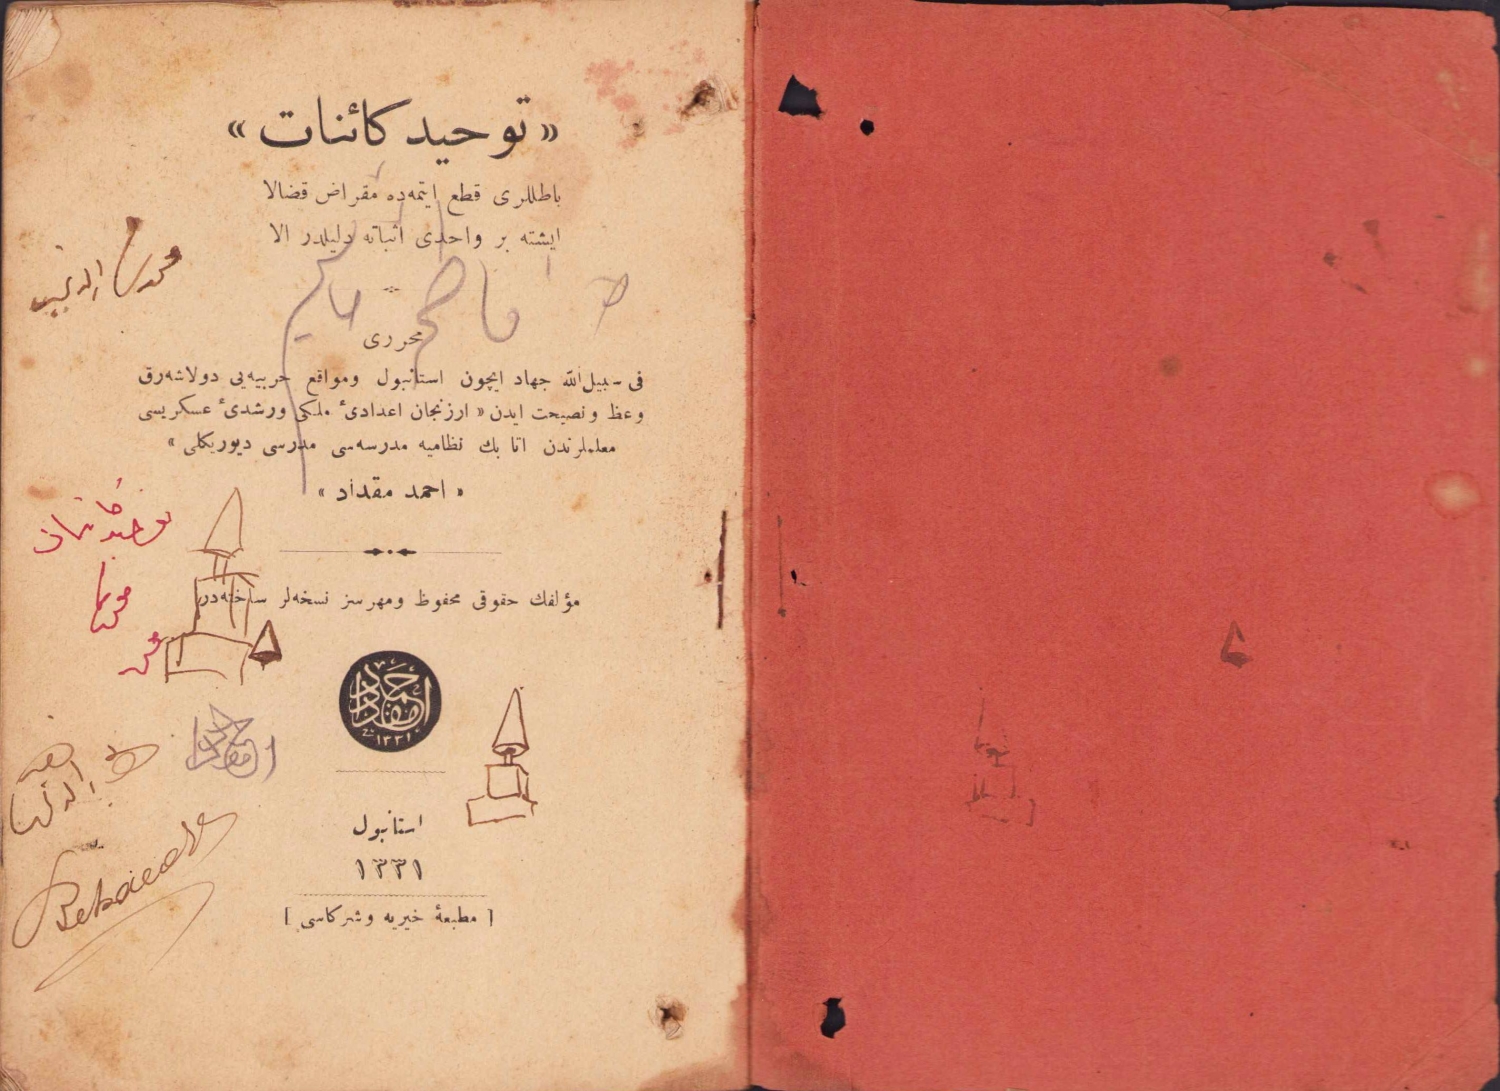 « توحيد كائنات »
باطللرى قطع ايتمه‌ده مقراض قضالا
ايشته بر واحدى اثباته دليلدر الا
محررى
فى سبيل الله جهاد ايچون استانبول ومواقع حربيه‌يى دولاشه‌رق
وعظ ونصيحت ايدن « ارزنجان اعدادئ ملكى ورشدئ عسكريسى
معلملرندن اتا بك نظاميه مدرسه‌سى مدرسى ديوريكلى »
« احمد مقداد »
مؤلفك حقوقى محفوظ ومهرسز نسخه‌لر ساخته‌در
احمد مقداد
١٣٣١
استانبول
١٣٣١
[ مطبعۀ خيريه وشركاسى ]
توحيد كائنات